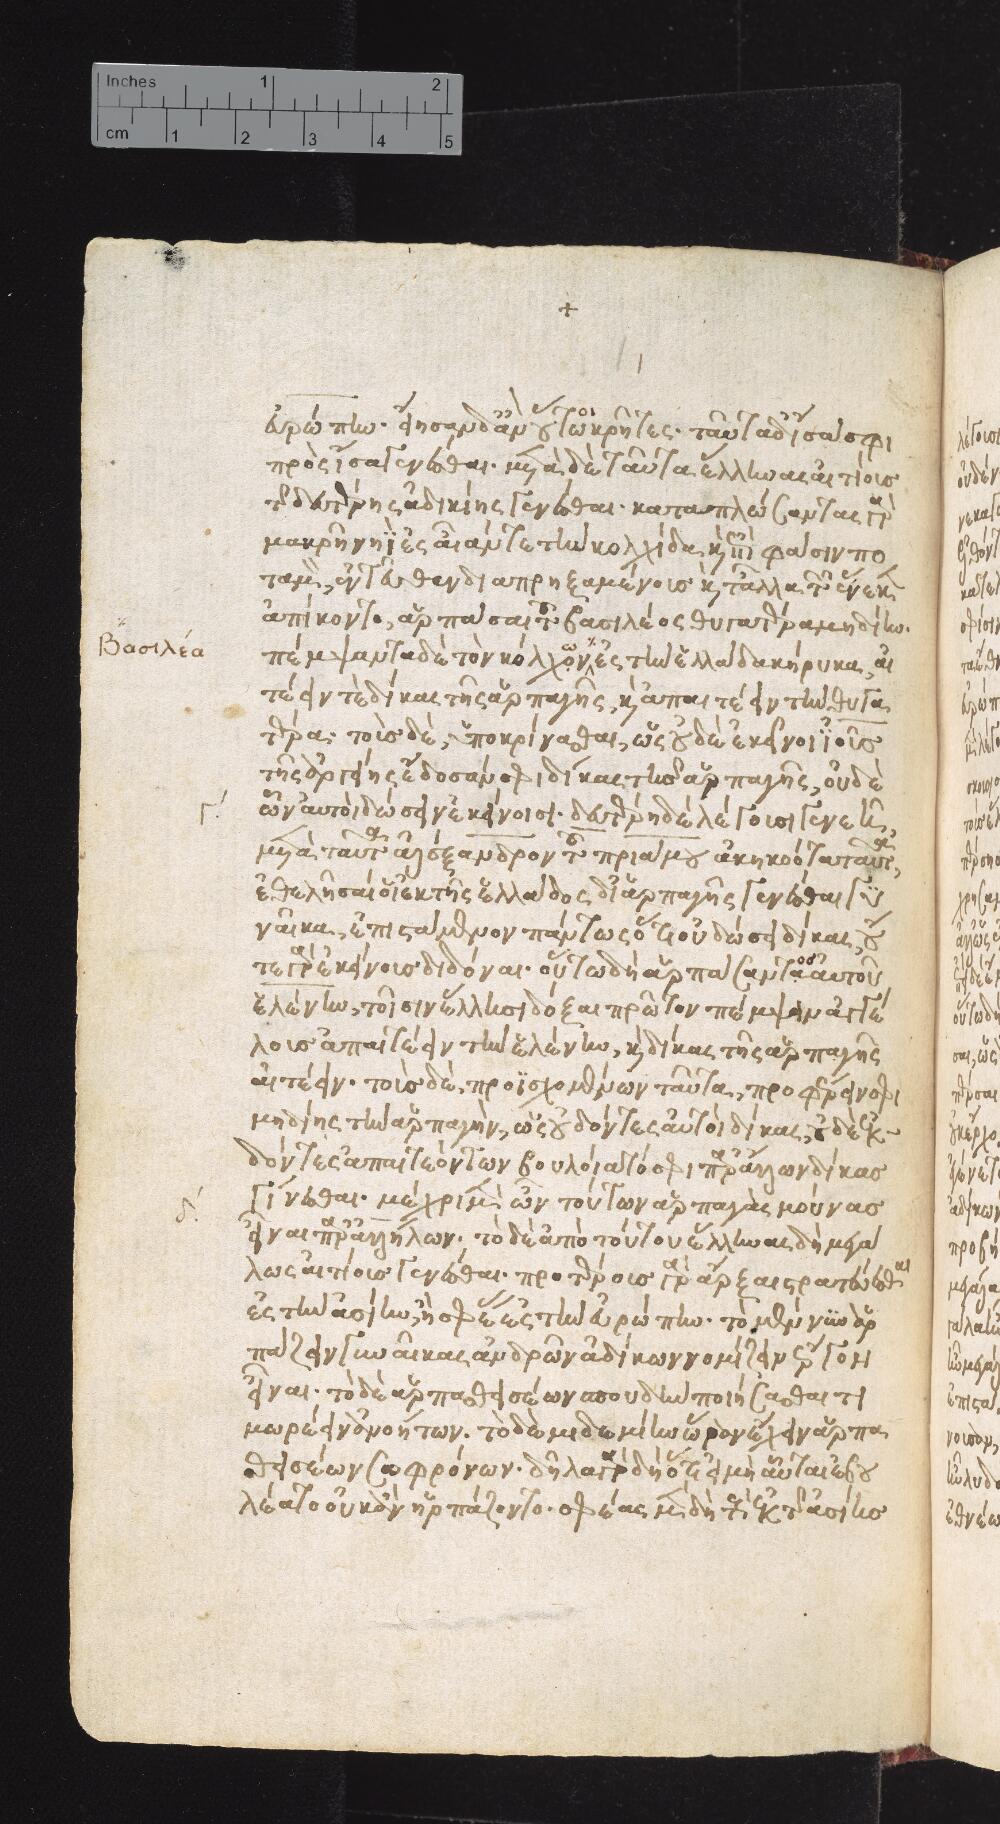 Inches 1 2
cm 1 2 3 4 5
+
εὐρώπην. εἴησαν δ᾽ ἂν οὗτοι κρῆτες. ταῦτα δὴ ἴσα σφι
πρὸς ἴσα γενέσθαι. μετὰ δὲ ταῦτα ἕλληνας αἰτίους
τῆς δευτέρης ἀδικίης γενέσθαι. καταπλώσαντας γὰρ
μακρῇ νηῒ ἐς αἶάν τε τὴν κολχίδα καὶ ἐπὶ φᾶσιν πο
ταμὸν, ἐνθεῦτεν διαπρηξαμένους καὶ τἆλλα τῶν εἵνεκεν
ἀπίκοντο, ἁρπάσαι τοῦ βασιλέος θυγατέρα μηδίην.
Βασιλέα
πέμψαντα δὲ τὸν κόλχων ἐς τὴν ἑλλάδα κήρυκα, αἰ
τέειν τε δίκας τῆς ἁρπαγῆς, καὶ ἀπαιτέειν τὴν θυγα
τέρα. τοὺς δὲ, ὑποκρίνασθαι, ὡς οὐδὲ ἐκεῖνοι ἰοῦς
τῆς ἀργείης ἔδοσάν σφι δίκας τῆς ἁρπαγῆς, οὐδὲ
γ΄.
ὦν αὐτοὶ δώσειν ἐκείνοισι. δευτέρῃ δὲ λέγουσι γενεῇ,
μετὰ ταῦτα ἀλέξανδρον τοῦ πριάμου ἀκηκοότα ταῦτα,
ἐθελῆσαί οἱ ἐκ τῆς ἑλλάδος δι᾽ ἁρπαγῆς γενέσθαι γυ
ναῖκα, ἐπιστάμενον πάντως ὅτι οὐ δώσει δίκας, οὔ
τε γὰρ ἐκείνους διδόναι. οὕτω δὴ ἁρπάσαντος αὐτοῦ
ἑλένην, τοῖσιν ἕλλησι δόξαι πρῶτον πέμψειν ἀγγέ
λους ἀπαιτέειν τὴν ἑλένην, καὶ δίκας τῆς ἁρπαγῆς
αἰτέειν. τοὺς δὲ, προϊσχομένων ταῦτα, προφέρειν σφι
μηδίης τὴν ἁρπαγὴν, ὡς οὐ δόντες αὐτοὶ δίκας, οὐδὲ ἐκ-
δόντες ἀπαιτεόντων βουλοίατό σφι παρ᾽ ἄλλων δίκας
δ΄.
γίνεσθαι. μέχρι μὲν ὦν τούτων ἁρπαγὰς μούνας
εἶναι παρ᾽ ἀλλήλων. τὸ δὲ ἀπὸ τούτου ἕλληνας δὴ μεγά
λως αἰτίους γενέσθαι. προτέρους γὰρ ἄρξαι στρατεύεσθαι
ἐς τὴν ἀσίην, ἢ σφέας ἐς τὴν εὐρώπην. τὸ μέν νυν ἁρ
πάζειν γυναῖκας ἀνδρῶν ἀδίκων νομίζειν ἔργον
εἶναι. τὸ δὲ ἁρπασθεισέων σπουδὴν ποιήσασθαι τι
μωρέειν ἀνοήτων. τὸ δὲ μιδεμίην ὤρην ἔχειν ἁρπα
σθεισέων σωφρόνων. δῆλα γὰρ δὴ ὅτι εἰ μὴ αὗται ἐβού
λέατο οὐκ ἂν ἡρπάζοντο. σφέας μὲν δὴ τοὺς ἐκ τῆς ἀσίης